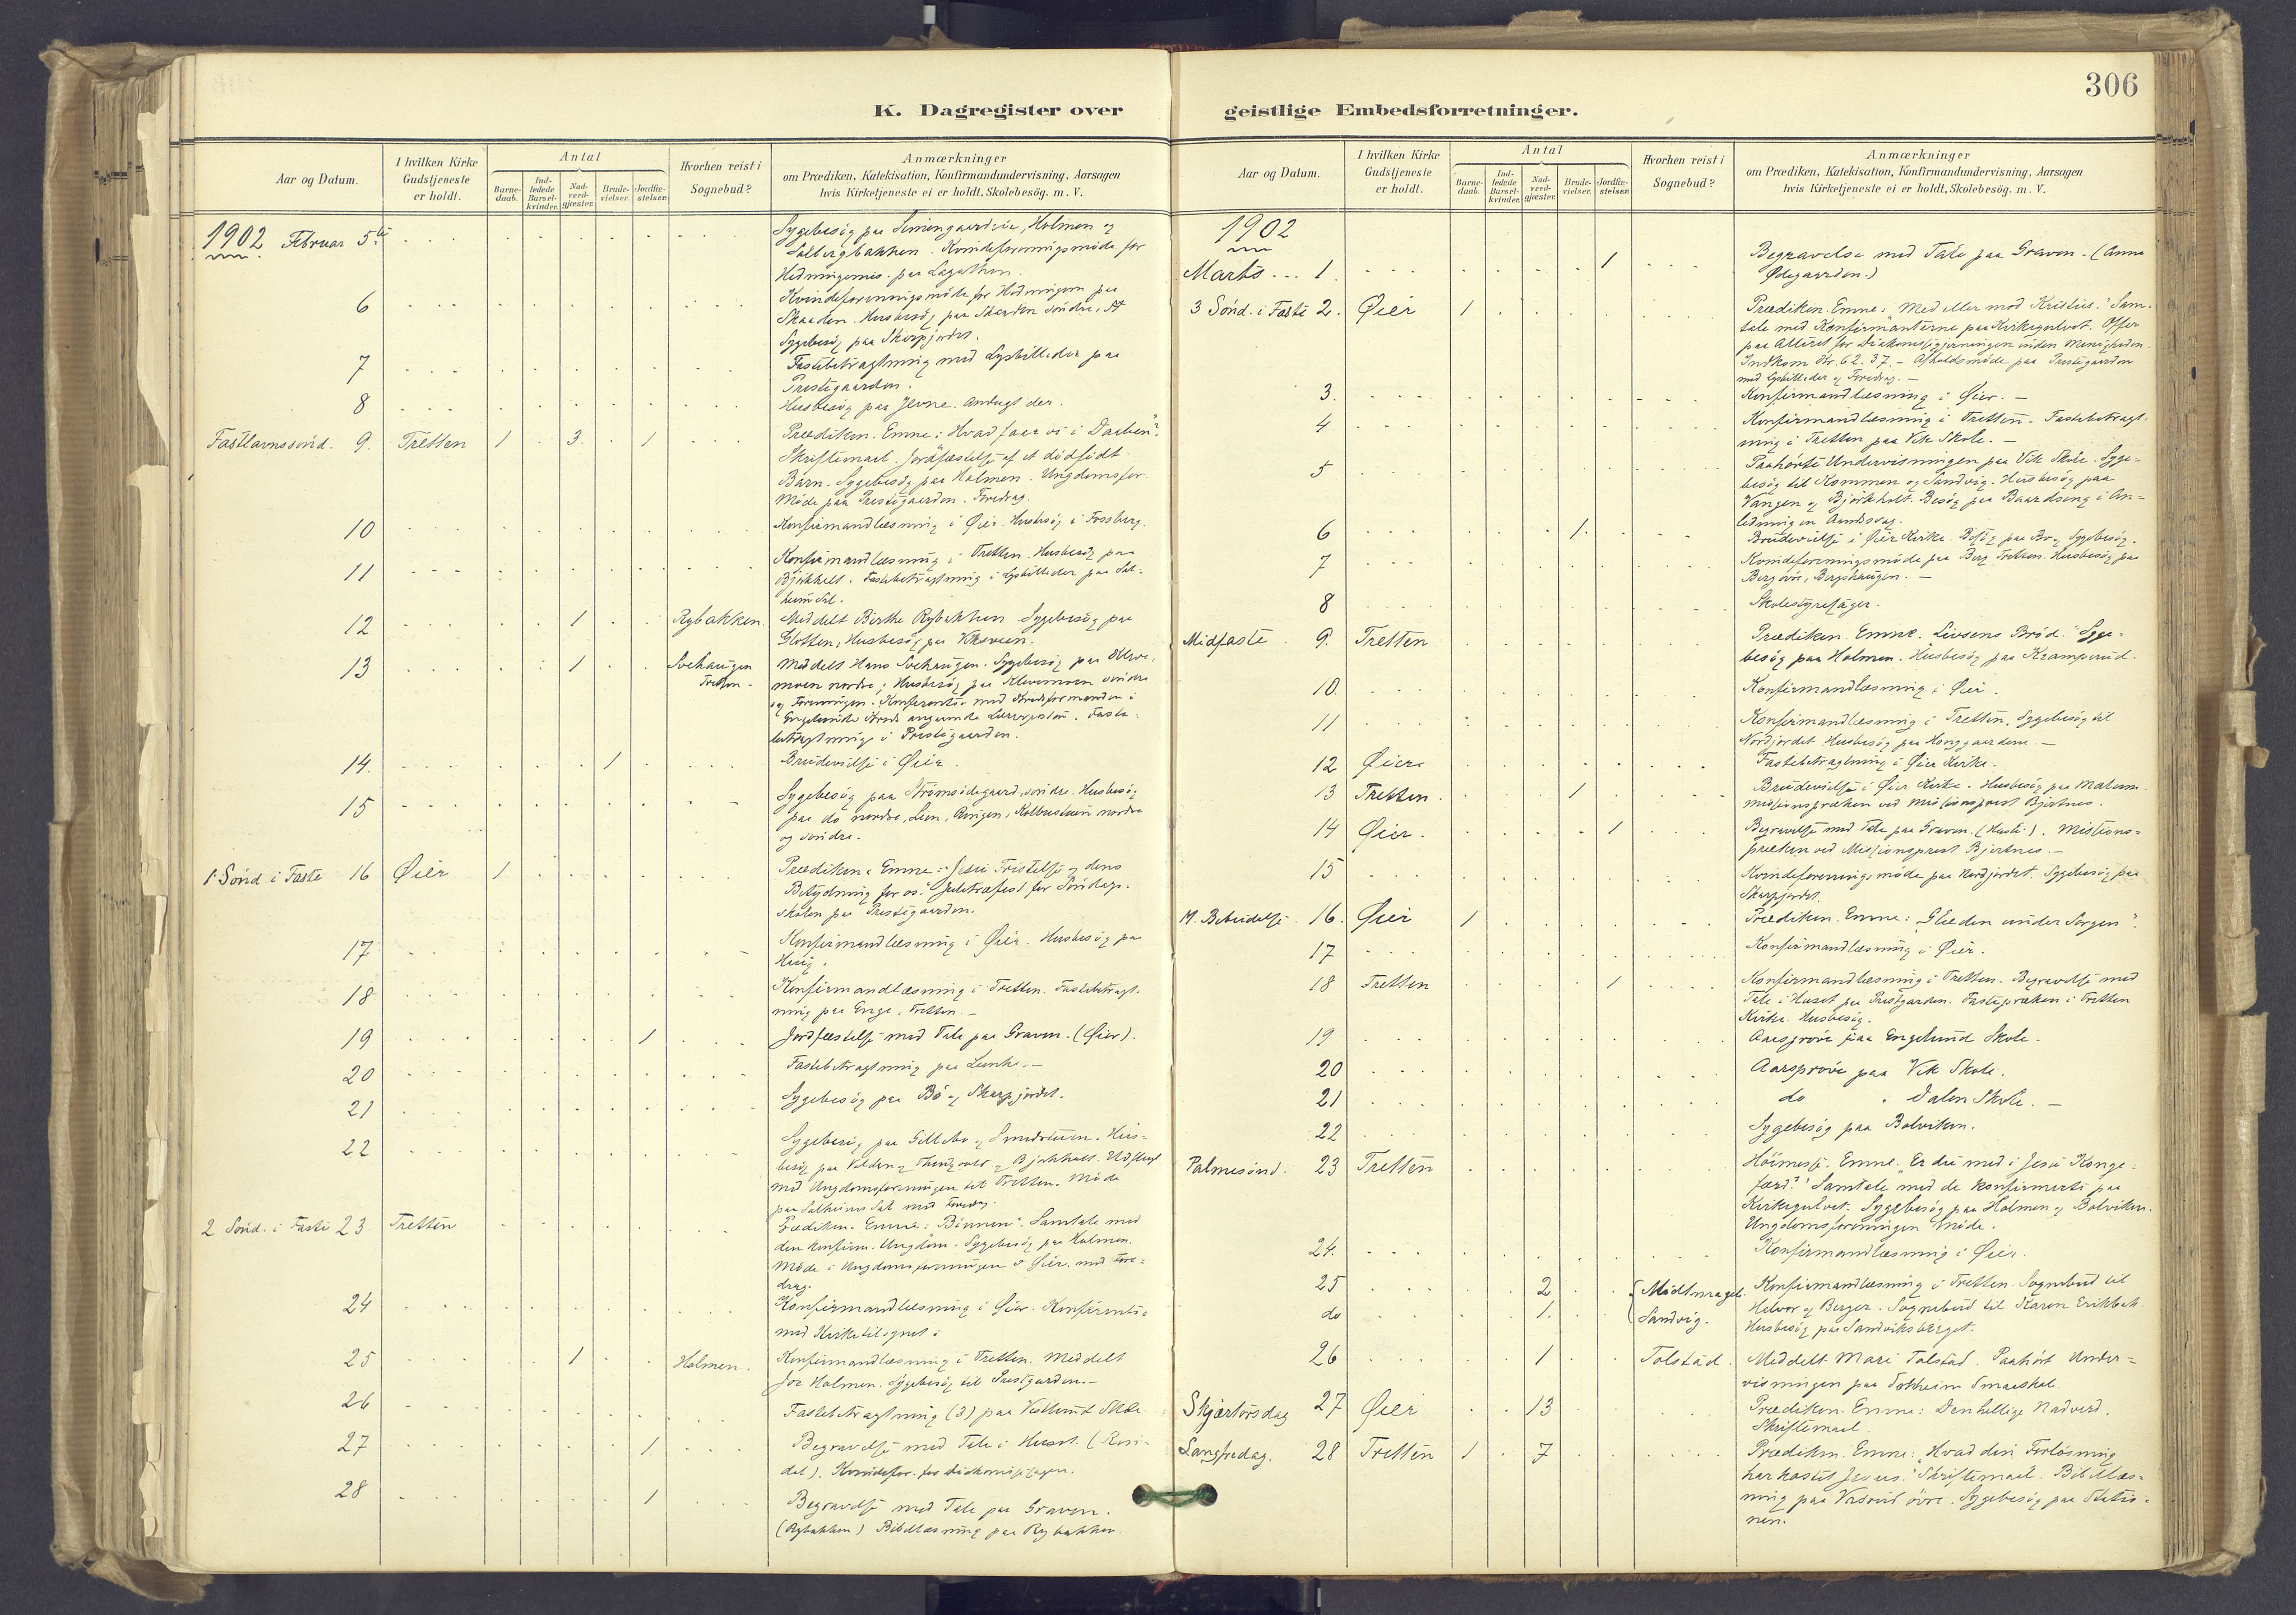 306
K. Dagregister over
geistlige Embedsforretninger.
Aar og Datum.
I hvilken Kirke Gudstjeneste er holdt.
Antal
Barne-daab.
Ind-ledede Barsel-kvinder.
Nad-verd-gjæster.
Brude-vielser.
Jordfæ-stelser.
Hvorhen reist i Sognebud?
Anmærkninger
om Prædiken, Katekisation, Konfirmandundervisning, Aarsagen
hvis Kirketjeneste ei er holdt, Skolebesög. m. V.
1902 Februar 5te Sygebesög paa Simengaardsie, Holmen og
Solbergbakken. Kvindeforeningsmöde for
Hedningemis. paa
6 Kvindeforeningsmöte for Hedningem paa
Skaaden. Husbesög paa Skaaden söndre,
Sygebesög paa Skarpjordet.
7 Fastebetragtning med Lysbilleder paa
Prestegaarden.
8 Husbesög paa Jevne. Andagt der.
Fastlavnssönd. 9. Tretten 1 3. 1 Prædiken. Emne: Hvad faar vi i Daaben".
Skriftemaal. Jordfæstelse af et dödfödt
Barn. Sygebesög paa Holmen. Ungdomsfor.
Möde paa Prestegaarden. Foredrag.
10 Konfirmandlæsning i Öier. Husbesög i Fossberg.
11 Konfirmandlæsning i Tretten. Husbesög paa
Björkholt. Fastebetragtning i Lysbilleder paa Sol-
heim Sal.
12 1 Rybakken. Meddelt Birthe Rybakken. Sygebesög paa
Glotten, Husbesög paa
13 1 Svehaugen Tretten - Meddelt Hans Svehaugen. Sygebesög paa
moen nordre; Husbesög paa Klevmoen söndre
og Foreningen. Konferentse med Kredsformanden i
Engelunds Kreds angaaende Lærerposten. Faste-
betragtninge i Prestegaarden.
14. 1 Brudevielse i Öier.
15 Sygebesög paa Strömsödegaard söndre. Husbesög
paa do nordre, Lien, Ringen, Kolbustuen nordre
og söndre.
1 Sönd i Faste 16 Öier 1 Prædiken. Emne: "Jesu Fristelse og dens
Betydning for os." Juletræfest for Söndags-
skolen paa Prestegaarden.
17 Konfirmandlæsning i Öier. Husbesög paa
Haug.
18 Konfirmandlæsning i Tretten. Fastebetragt-
ning paa Enge, Tretten. -
19 1 Jordfæstelse med Tale paa Graven. (Öier).
20 Fastebetragtning paa Lunke. -
21 Sygebesög paa Bö og Skarpjordet.
22 Sygebesög paa Gillebo og Smedstuen. Hus-
besög paa Volden og og Björkholt. Udflugt
med Ungdomsforeningen til Tretten. Möde
paa Solheims Sal med Foredrag.
2 Sönd. i Faste 23 Tretten Prædiken. Emne: Bönnen". Samtale med
den konfirm. Ungdom. Sygebesög paa Holmen.
Möde i Ungdomsforeningen i Öier. med Fore-
drag.
24 Konfirmandlæsning i Öier. Konferentse
med Kirketilsynet i
25 1 Holmen. Konfirmandlæsning i Tretten. Meddelt
Joe Holmen. Sygebesög til Prestgarden. -
26 Fastebetragtning (3) paa Skole
27 1 Begravelse med Tale i Huset. (Rosi-
dal). Kvindefor. for Diakonissesagen.
28 1 Begravelse med Tale paa Graven.
(Rybakken) Bibellæsning paa Rybakken.
Aar og Datum.
I hvilken Kirke Gudstjeneste er holdt.
Antal
Barne-daab.
Ind-ledede Barsel-kvinder.
Nad-verd-gjæster.
Brude-vielser.
Jordfæ-stelser.
Hvorhen reist i Sognebud?
Anmærkninger
om Prædiken, Katekisation, Konfirmandundervisning, Aarsagen
hvis Kirketjeneste ei er holdt, Skolebesög. m. V.
1902
Marts 1. 1 Begravelse med Tale paa Graven. (Anne
Ödegaarden.)
3 Sönd. i Faste 2. Öier 1 Prædiken. Emne: "Med eller mod Kristus." Sam-
tale med Konfirmanterne paa Kirkegulvet. Offer
paa Alteret for Diakonissegjerningen inden Menigheden.
Indkom Kr. 62.37. - Afholdsmöde paa Prestegaarden
med Lysbilleder og Foredrag. -
3. Konfirmandlæsning i Öier. -
4 Konfirmandlæsning i Tretten. Fastebetragt-
ning i Tretten paa Vik Skole. -
5 Paahörte Undervisningen paa Vik Skole. Syge-
besög til Kommen og Sandvig. Husbesög paa
Vangen og Björkholt. Besög paa Baardseng i An-
ledning en Aandssvag.
6 1. Brudevielse i Öier Kirke. Besög paa Bro, Sygebesög.
7 Kvindeforeningsmöde paa Berg Tretten. Husbesög paa
Berg övre, Bergshaugen. -
8 Skolestyresager.
Midfaste 9. Tretten Prædiken. Emne. Livsens Bröd." Syge-
besög paa Holmen. Husbesög paa Kramperud.
10. Konfirmandlæsning i Öier.
11 Konfirmandlæsning i Tretten. Sygebesög til
Nordjordet. Husbesög paa Honggaardene. -
12 Öier Fastebetragtning i Öier Kirke.
13 Tretten. 1 Brudevielse i Öier Kirke. Husbesög paa
Missionspræken ved Missionsprest Bjertnes.
14 Öier. 1 Begravelse med Tale paa Graven. Missions-
præken ved Missionsprest Bjertnes. -
15 Kvindeforenings möde paa Nordjordet. Sygebesög paa
Skarpjordet.
M. Bebudelse. 16. Öier 1 Prædiken. Emne: "Glæden under Sorgen".
17 Konfirmandlæsning i Öier.
18 Tretten 1 Konfirmandlæsning i Tretten. Begravelse med
Tale i Huset paa Prestgarden. Fastepræken i Tretten
Kirke. Husbesög.
19 Aarspröve paa Engelund Skole.
20 Aarspröve paa Vik Skole.
21 do " Dalen Skole. -
22 Sygebesög paa Bolviken.
Palmesönd. 23 Tretten Höimesse. Emne. "Er du med i Jesu Konge-
færd?" Samtale med de konfirmerte paa
Kirkegulvet. Sygebesög paa Holmen og Bolviken.
Ungdomsforeningen Möde.
24. Konfirmandlæsning i Öier.
25 2 Konfirmandlæsning i Tretten. Sognebud til
do 1. Sandvig. Helvor og Berger. Sognebud til Karen Erikbak.
Husbesög paa Sandviksberget.
26 1 Tolstad. Meddelt Mari Tolstad. Paahört Under-
visningen paa Solheim Smaaskol.
Skjærtorsdag 27 Öier 13 Prædiken. Emne: Den hellige Nadverd.
Skriftemaal.
Langfredag. 28 Tretten 1 7 Prædiken. Emne: "Hvad din Forlösning
har kostet Jesus." Skriftemaal. Bibellæs-
ning paa Vasrud övre. Sygebesög paa Statio-
nen.